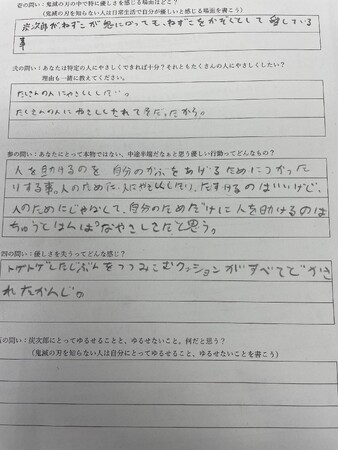 壱の問い：鬼滅の刃の中で特に優しさを感じる場面はどこ？
（鬼滅の刃を知らない人は日常生活で自分が優しいと感じる場面を書こう）
炭次郎がねずこが鬼になっても、ねずこをかぞくとして愛している
事
次の問い：あなたは特定の人にやさしくできれば十分？それともたくさんの人にやさしくしたい？
理由も一緒に教えてください。
たくさんの人にやさししたい。
たくさんの人にやさししもされて
参の問い：あなたにとって本物ではない、中途半端だなぁと思う優しい行動ってどんなもの？
人を助けるのを自分のかぶをあげるためにつかった
りする事。人のために、人にやさしくしたり、たすけるのはいいけど、
人のためにじゃなくて、自分のためだけに人を助けるのは
ちゅうとはんぱなやさしさだと思う。
四の問い：優しさを失うってどんな感じ？
トゲトゲしたじぶんをつつみこむクッションがすべてどかさ
れたかんじ。
五の問い：炭次郎にとってゆるせることと、ゆるせないこと、何だと思う？
（鬼滅の刃を知らない人は自分にとってゆるせること、ゆるせないことを書こう）